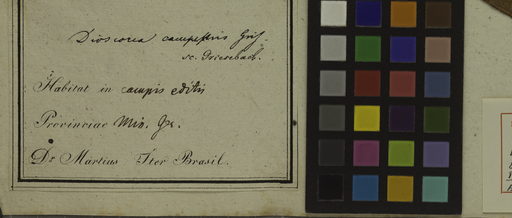 Dioscorea campestris Gris.
sc. Grisebach.
Habitat in campis editis
Provinciae Min. Gr.
Dr Martius Iter Brasil.